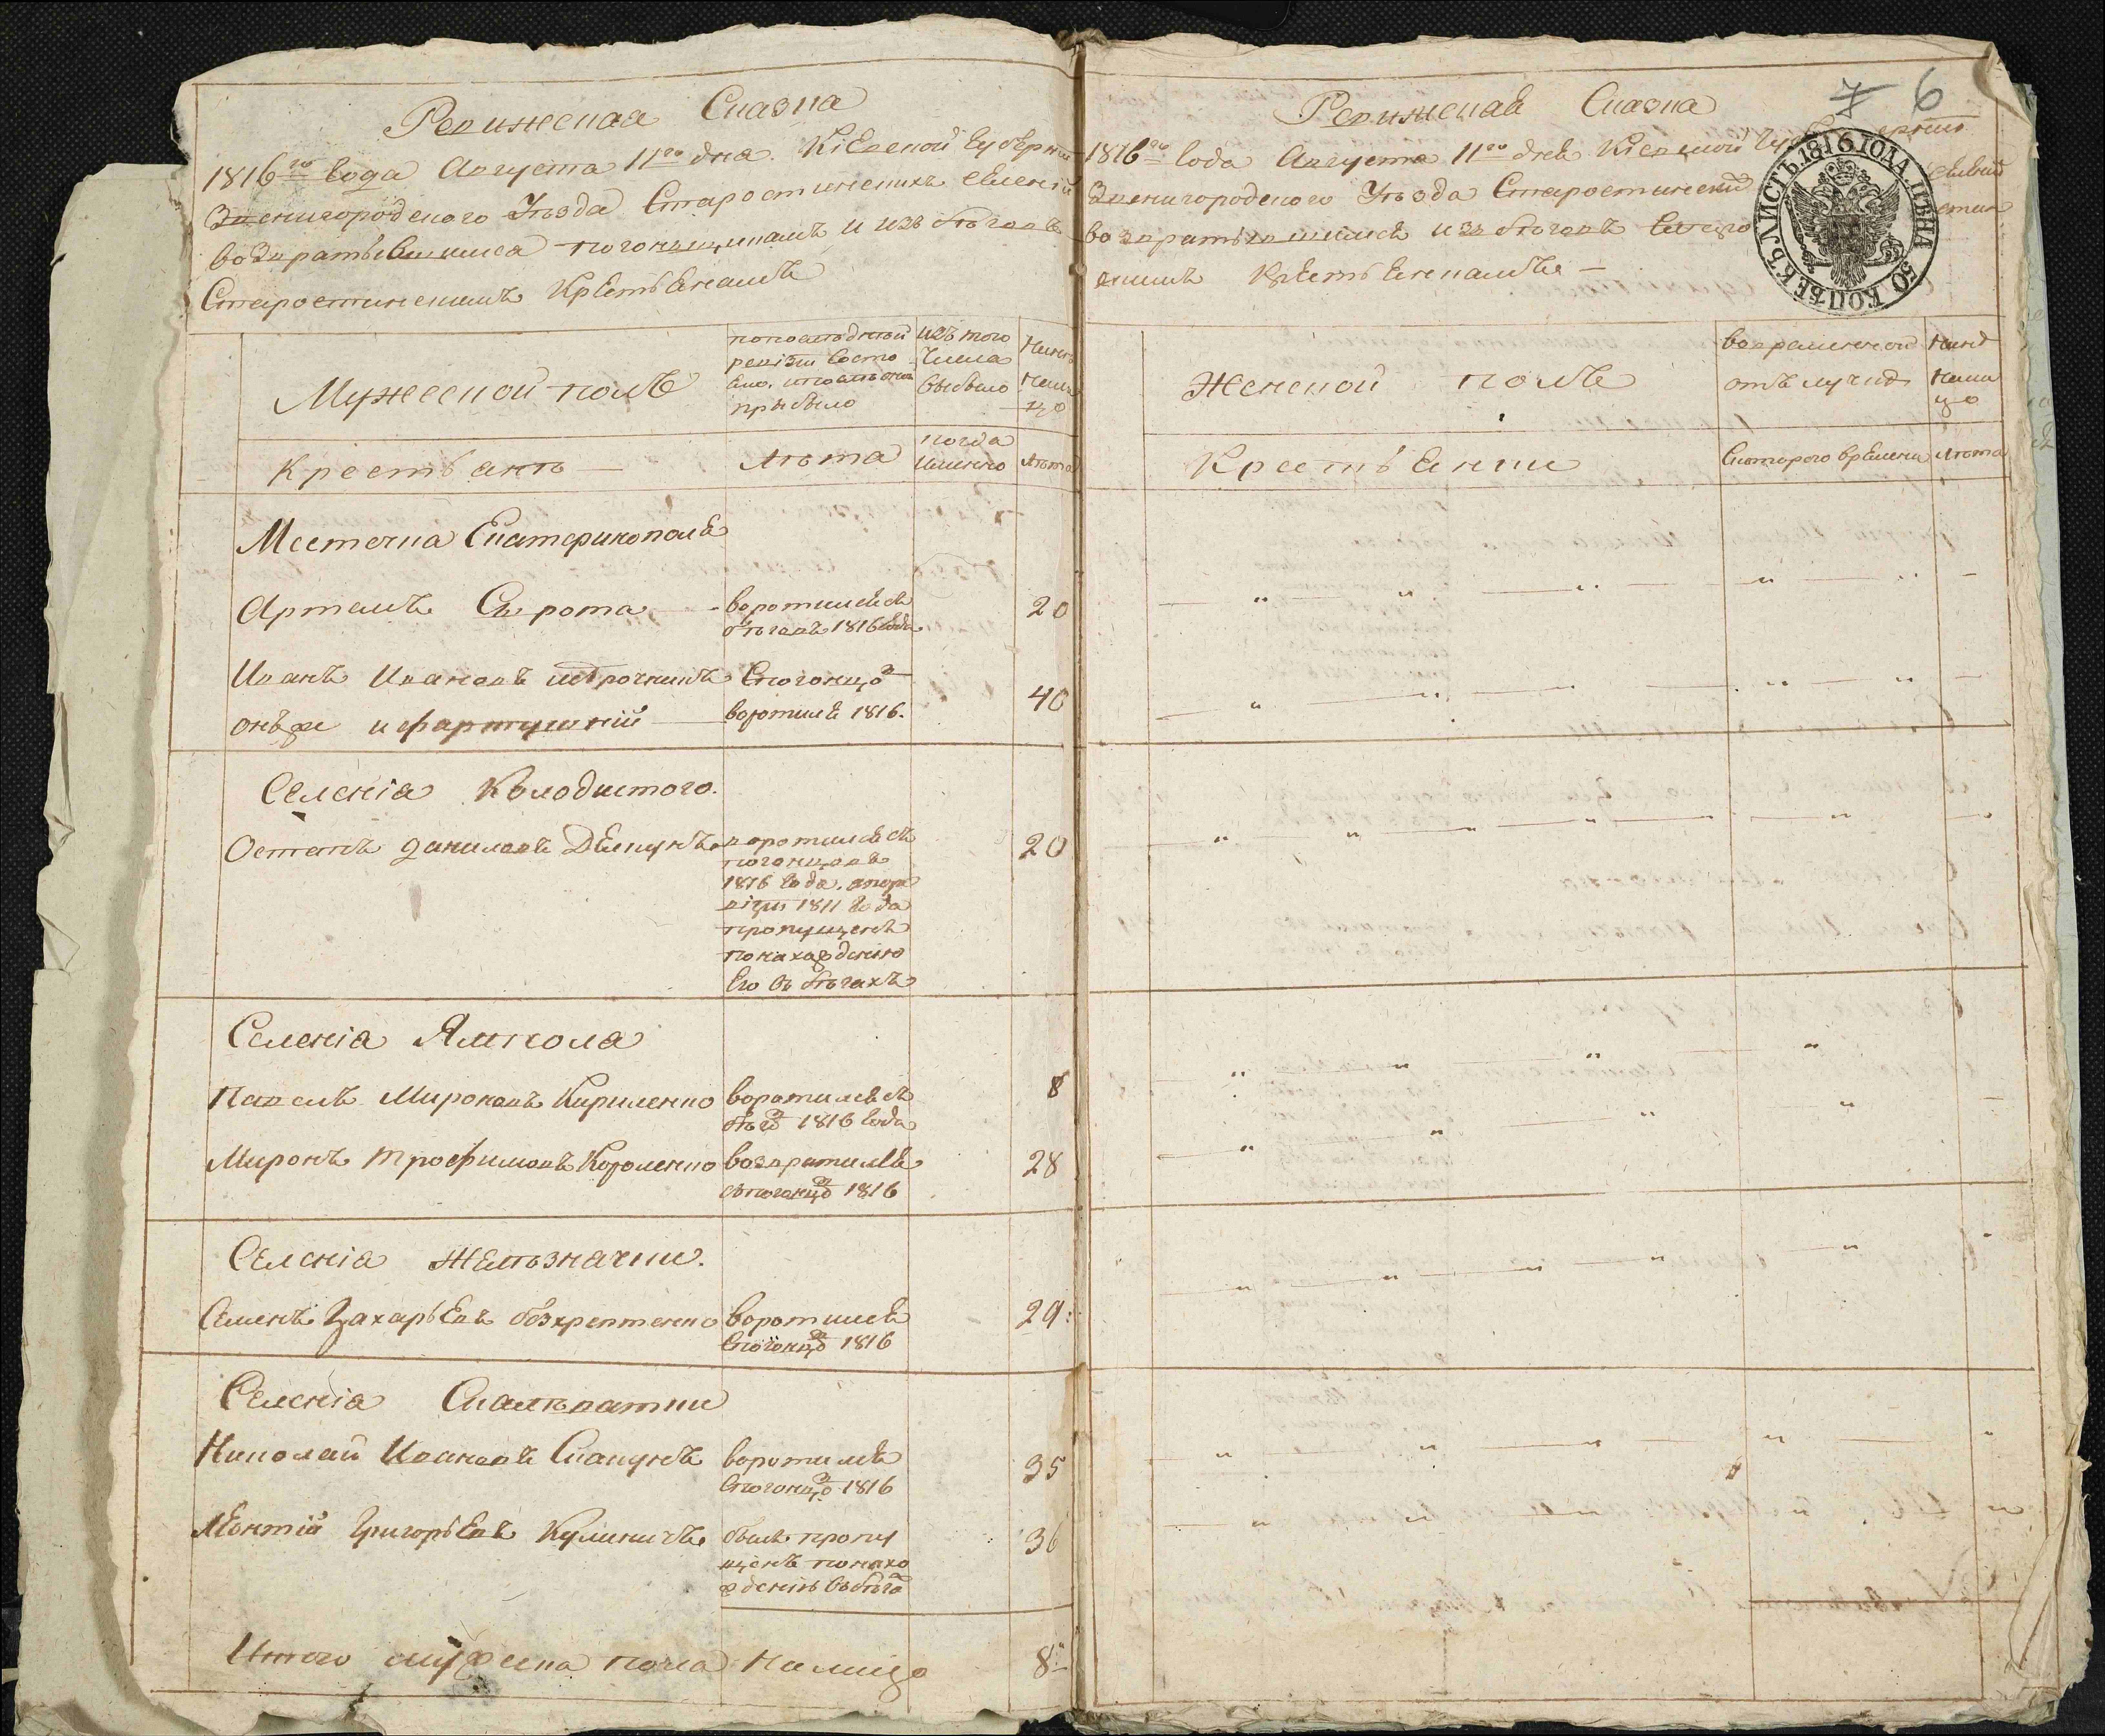 Ревижская Сказка
1816го Года Августа 11го дня. Кіевской Губерніи
Звенигородского Уезда Старостинскихъ Селеній
возвратывшимса погонщикамъ и изъ беговъ
Старостинскимъ Крєстьянамъ
Мужеской полъ
попоследней ревізіи состояло, ипосле оной прыбыло
изъ того числа выбыло
Ныне налицо
Крестьянъ
Лета
когда именно
Лета
Местечка Екатеринополя
Артемъ Сырота
воротился съ беговъ 1816 года
20
Иванъ Ивановъ
онъже и
Спогонцовъ воротился 1816.
40
Селенія Колодистого.
Остапъ Даниловъ
воротился съ погонцовъ 1816 года. апоре візіи 1811 года пропущенъ понахожденію Его въ бегахъ
20
Селенія Ямпола
Павелъ Мироновъ Кириленко
воротился съ бегов 1816 года
8
Миронъ Трофимовъ Короленко
возвратился съпогонцов 1816
28
Селенія Железнячки.
Семенъ Захарьевъ
воротился Спогонцов 1816
29
Селенія Скалеватки
Николай Ивановъ Скакунъ
воротился Спогонцов 1816
35
Леонтій Григорьевъ Кулиничъ
былъ пропущенъ понахожденію въбегах
36
Итого мужеска пола налицо
8
7 6
Ревижская Сказка
1816го Года Августа 11го дня Кіевской Губерніи
Звенигородского Уезда Старостинскихъ Селеній
возвратывшимся изъ беговъ
Крєстьянкамъ
ЛИСТЪ 1816 ГОДА. ЦѢНА 50 КОПѢЕКЪ
Женской полъ
вовременной отлучке
Ныне налицо
Крестьянки
Скоторого времени
Лета